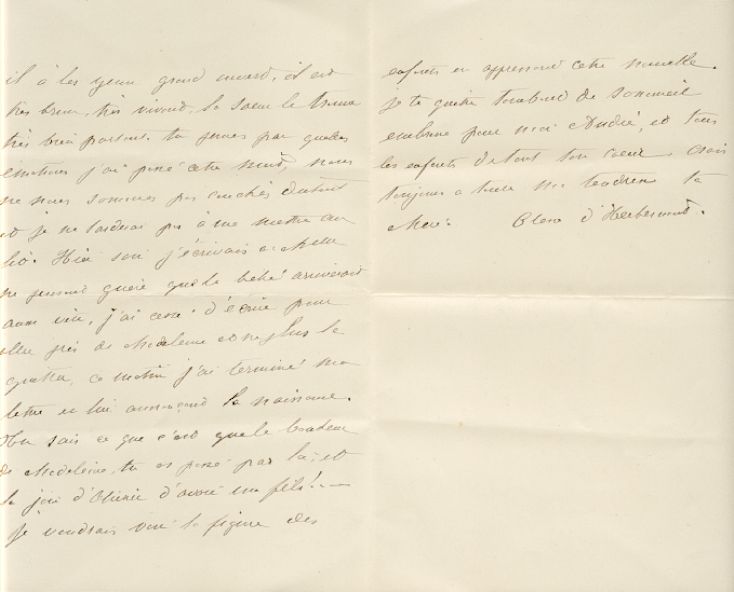 il a les yeux grand ouvert, il est
très brun, très vivant, la soeur le trouve
très bien portant. tu penses par quelles
émotions j'ai passé cette nuit, nous
ne nous sommes pas couchés du tout
et je ne tarderai pas à me mettre au
lit. Hier soir j'écrivais à
ne pensant guère que le bébé arriverait
aussi vite, j'ai cessé d'écrire pour
aller près de Madeleine et ne plus la
quitter, ce matin j'ai terminé ma
lettre en lui annonçant la naissance.
Tu sais ce que c'est que le bonheur
de Madeleine, tu as passé par là, et
la joie d'Olivier d'avoir un fils! —
Je voudrais voir la figure des
enfants en apprenant cette nouvelle.
je te quitte tombant de sommeil
embrasse pour moi André, et tous
les enfants de tout ton coeur. Crois
toujours à toute ma tendresse ta
Mère. d'Herbemont.